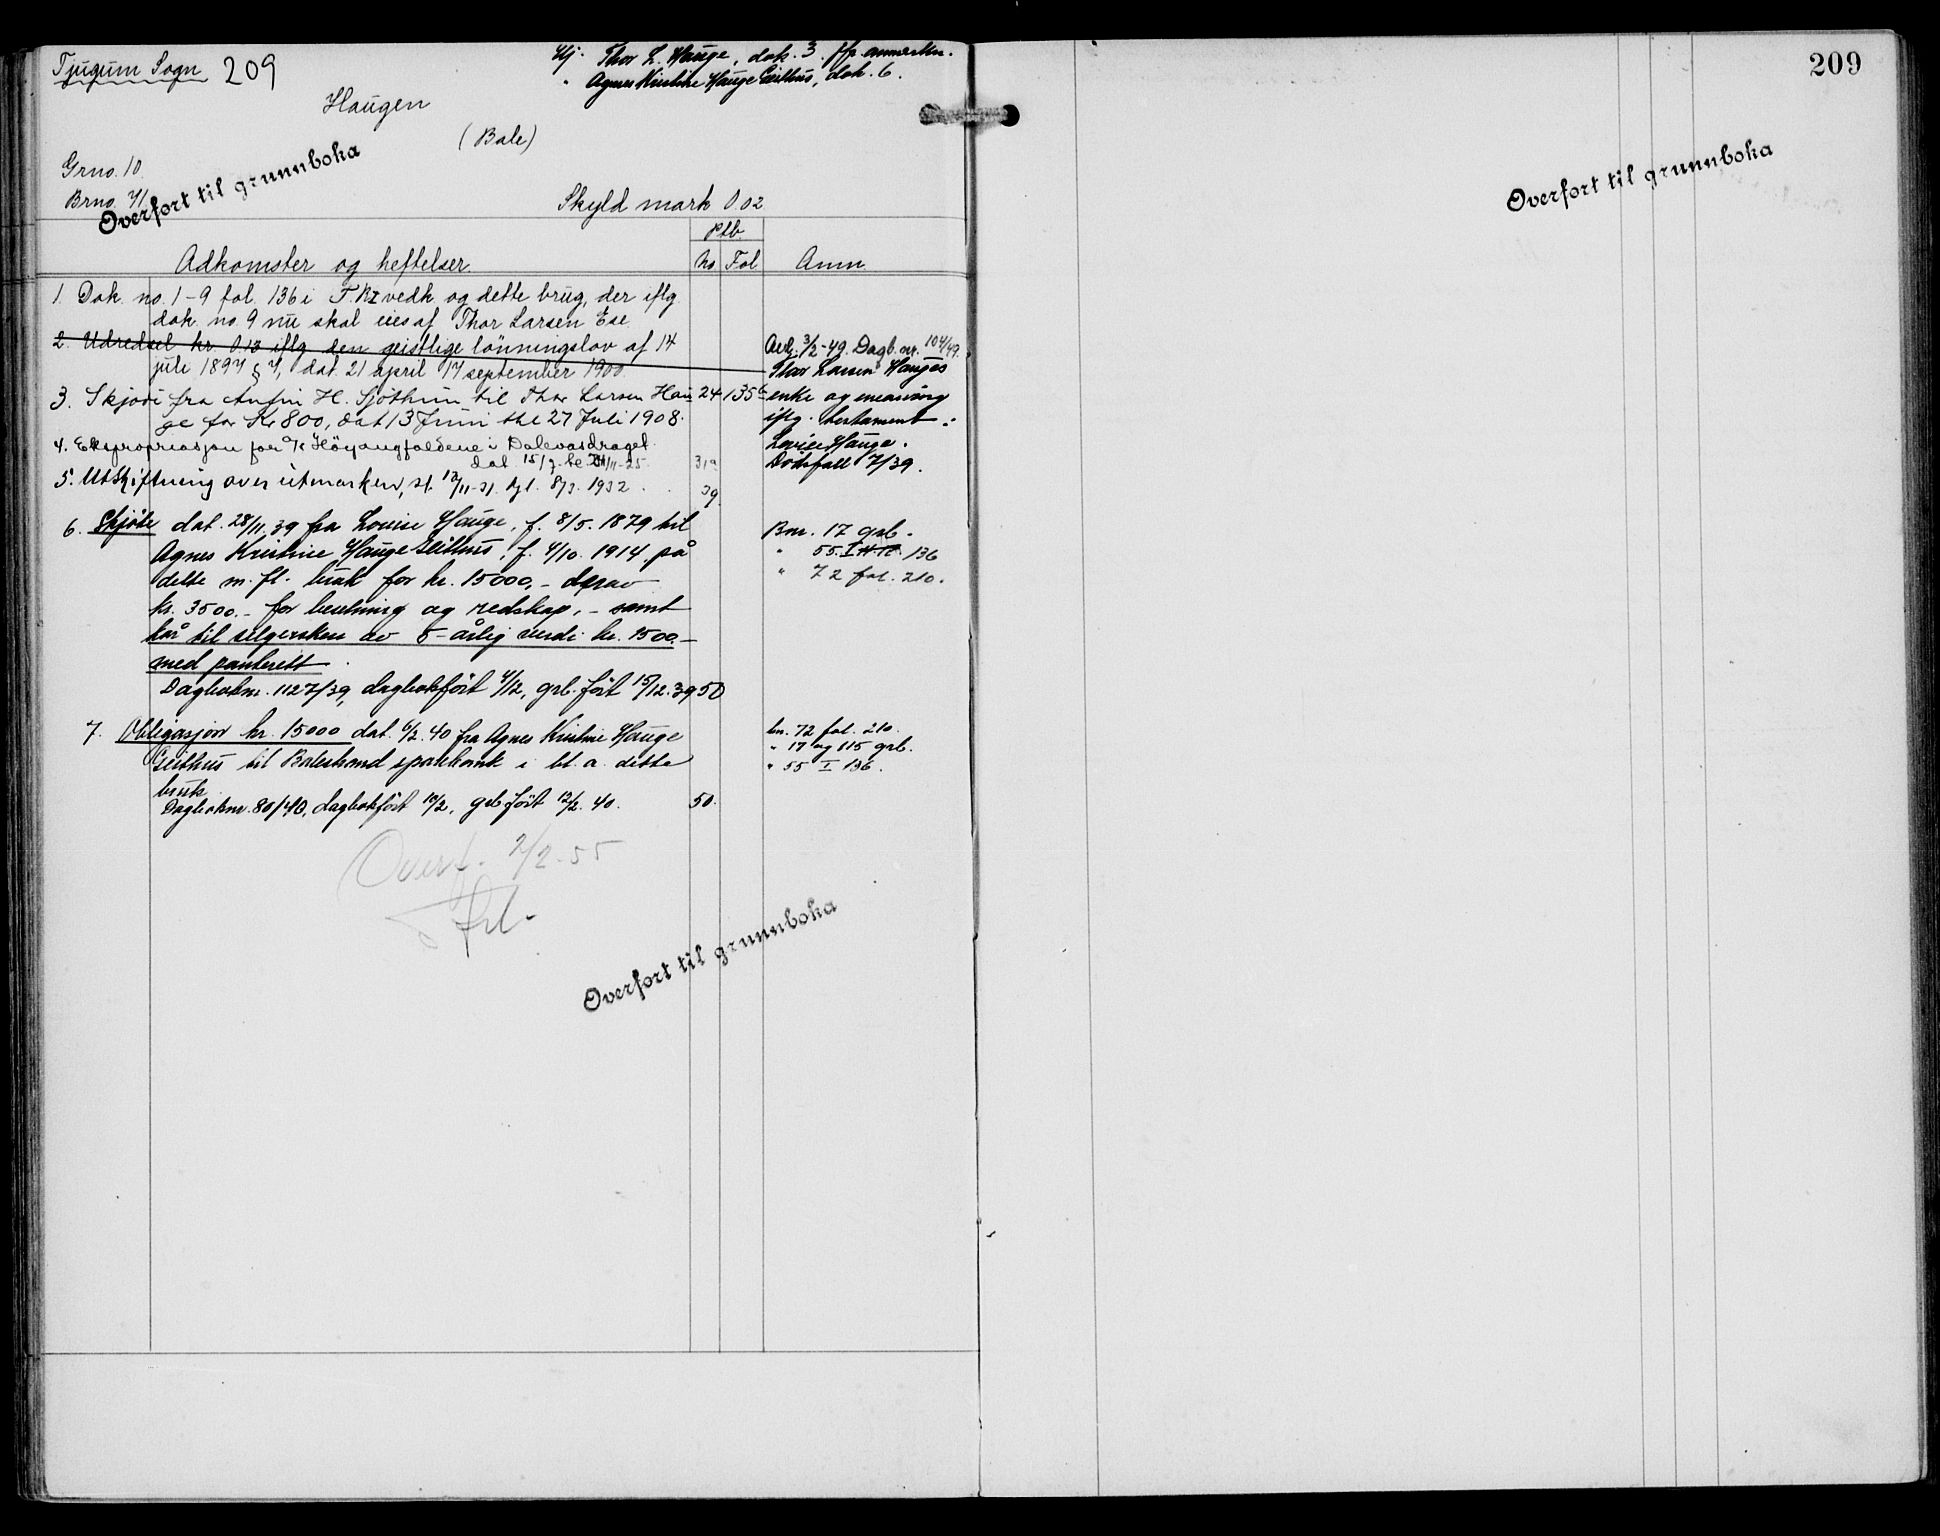 Tjugum Sogn 209
Hj. Thor L. Hauge, dok. 3 jfr. anmerkn.
" Agnes Kristine Hauge Eithus, dok. 6.
209
Haugen
(Bale)
Grno. 10
Brno. 71
Overført til grunnboka
Overført til grunnboka
Skyld mark 0.02
Ptb.
Adkomster og heftelser No Fol Anm
1. Dok. no. 1-9 fol. 136 i T.R I vedk. og dette brug, der iflg.
dok. no. 9 nu skal eies af Thor Larsen Ese.
2. Udredsel kr 0.13 iflg den geistlige lönningslov af 14
juli 1897 § 7, dat. 21 april 17 september 1900
3. Skjöde fra Anfin H. Sjöthun til Thor Larsen Hau- 24 135
ge for Kr 800, dat 13 Juni thl 27 Juli 1908.
4. Ekspropriasjon for A/s Höyangfaldene i Dalevasdraget.
dat 15/7- tl. 21/11-25. 319
5. Utskiftning over utmarken, sl. 12/11-31. tgl. 8/3. 1932. 39
Avlj. 3/2-49. Dagb. nr. 104/49.
Thor Larsen Hauges
enke og enearving
iflg. testament:
Lovise Hauge.
Dödsfall 7/39.
6. Skjöte dat. 28/11.39 fra Lovise Hauge, f. 8/5. 1879 til
Agnes Kristine Hauge Eithus, f. 4/10. 1914 på
dette m. fl. bruk for kr. 15000,- derav
kr. 3500.- for besetning og redskap, - samt
kår til selgersken av 5-årlig verdi kr. 1500.-
med panterett.
Dagboknr. 1127/39, dagbokfört 4/12, grb. fört 15/12.39 50
Bnr. 17 grb.
" 55 I 136
" 72 fol. 210.
7. Obligasjon kr. 15000 dat. 6/2. 40 fra Agnes Kristine Hauge
Eithus til Balestrand sparebank i bl. a. dette
bruk
Dagboknr. 80/40, dagbokfört 10/2, grb fört 12/2. 40. 50.
bn. 72 fol. 210.
" 17 og 115 grb.
" 55 I 136.
Overf. 2/2-55
Overført til grunnboka